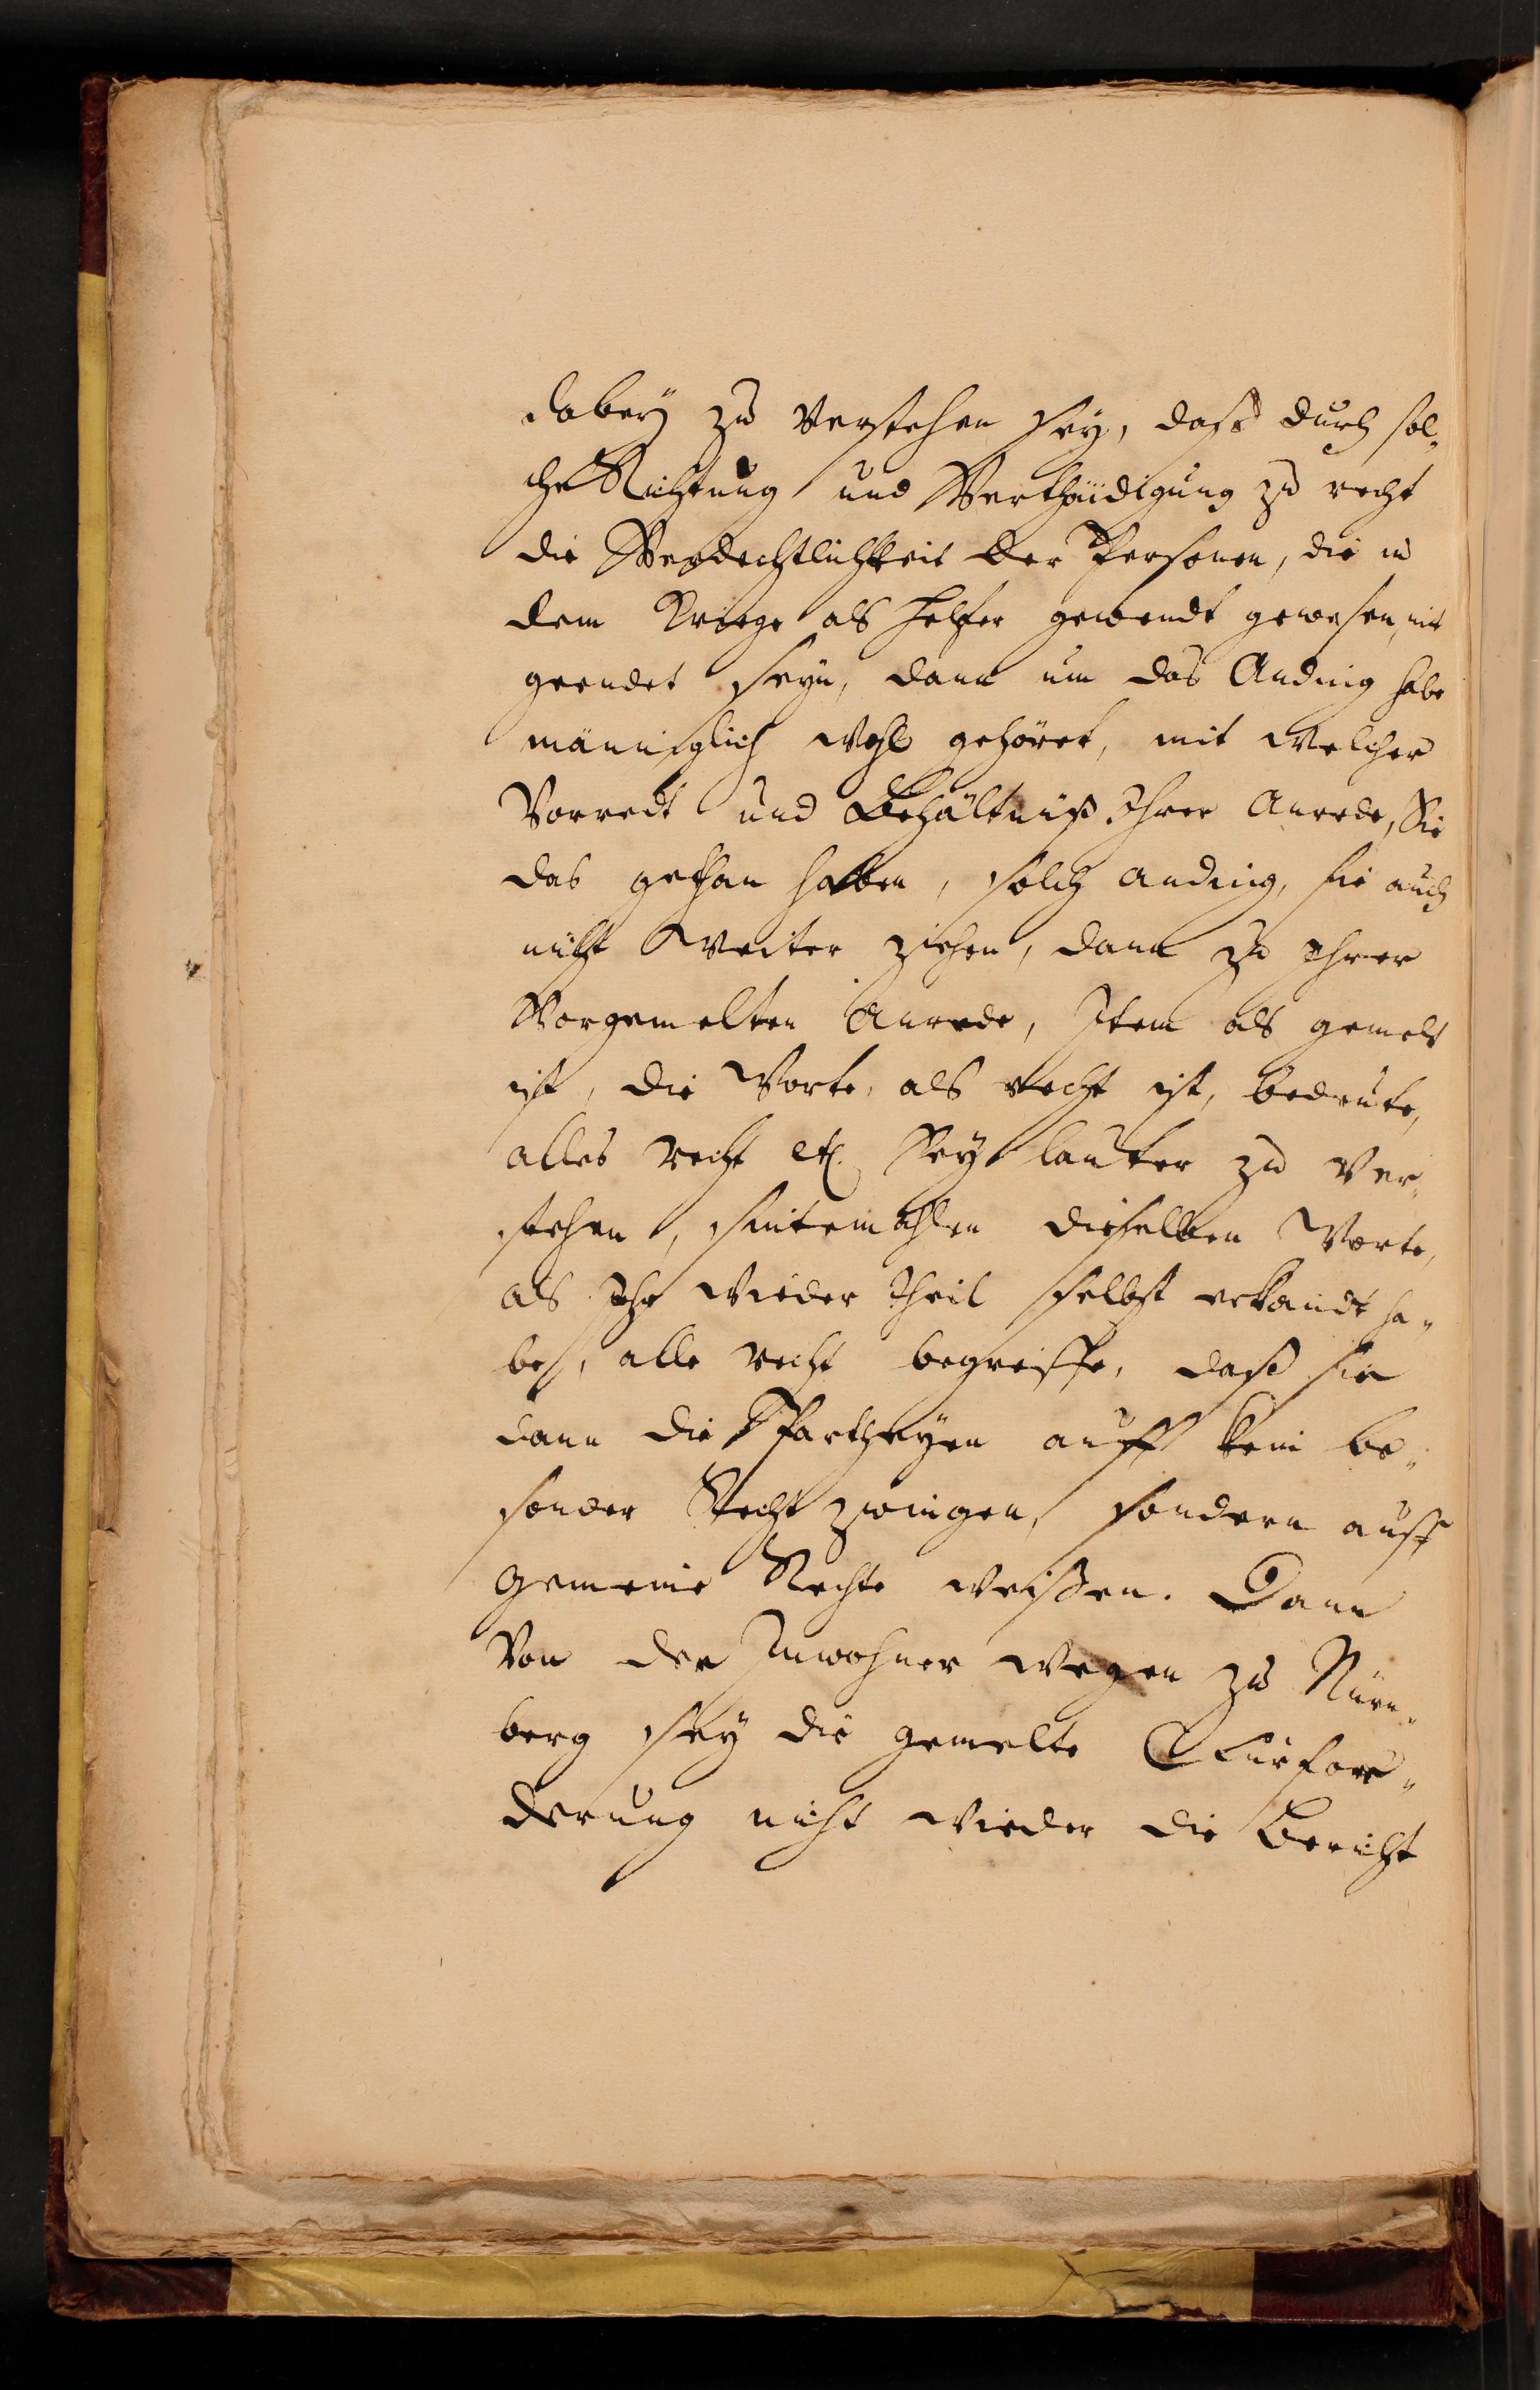 dabeÿ zu verstehen seÿ, dass durch sol-
che Richtung und Verthäidigung zu recht
die Verdechtlichkeit der Personen, die in
dem Kriege als helfer gewendt gewesen, nit
geendet seyn, dann um das Anding habe
männiglich wohl gehöret, mit welcher
Vorredt und Behältniß Ihrer Anrede, Sie
das gethan haben, solch anding, sie auch
nicht weiter ziehen, dann zu Ihrer
Vorgemelten Anrede, Item als gemelt
ist, die Worte, als recht ist, bedeute,
alles recht etc. Seÿ lauter zu ver-
stehen, sintemahlen dieselben Worte,
als Ihr wieder theil selbst erkandt ha-
be, alle recht begreiffe, dass sie
dann die Partheyen auff kein be-
sonder Recht zwingen, sondern auff
gemeine Rechte weißen. Dann
Von der Inwohner wegen zu Nürn-
berg seÿ die gemelte Fürfor-
derung nicht wieder die Bericht